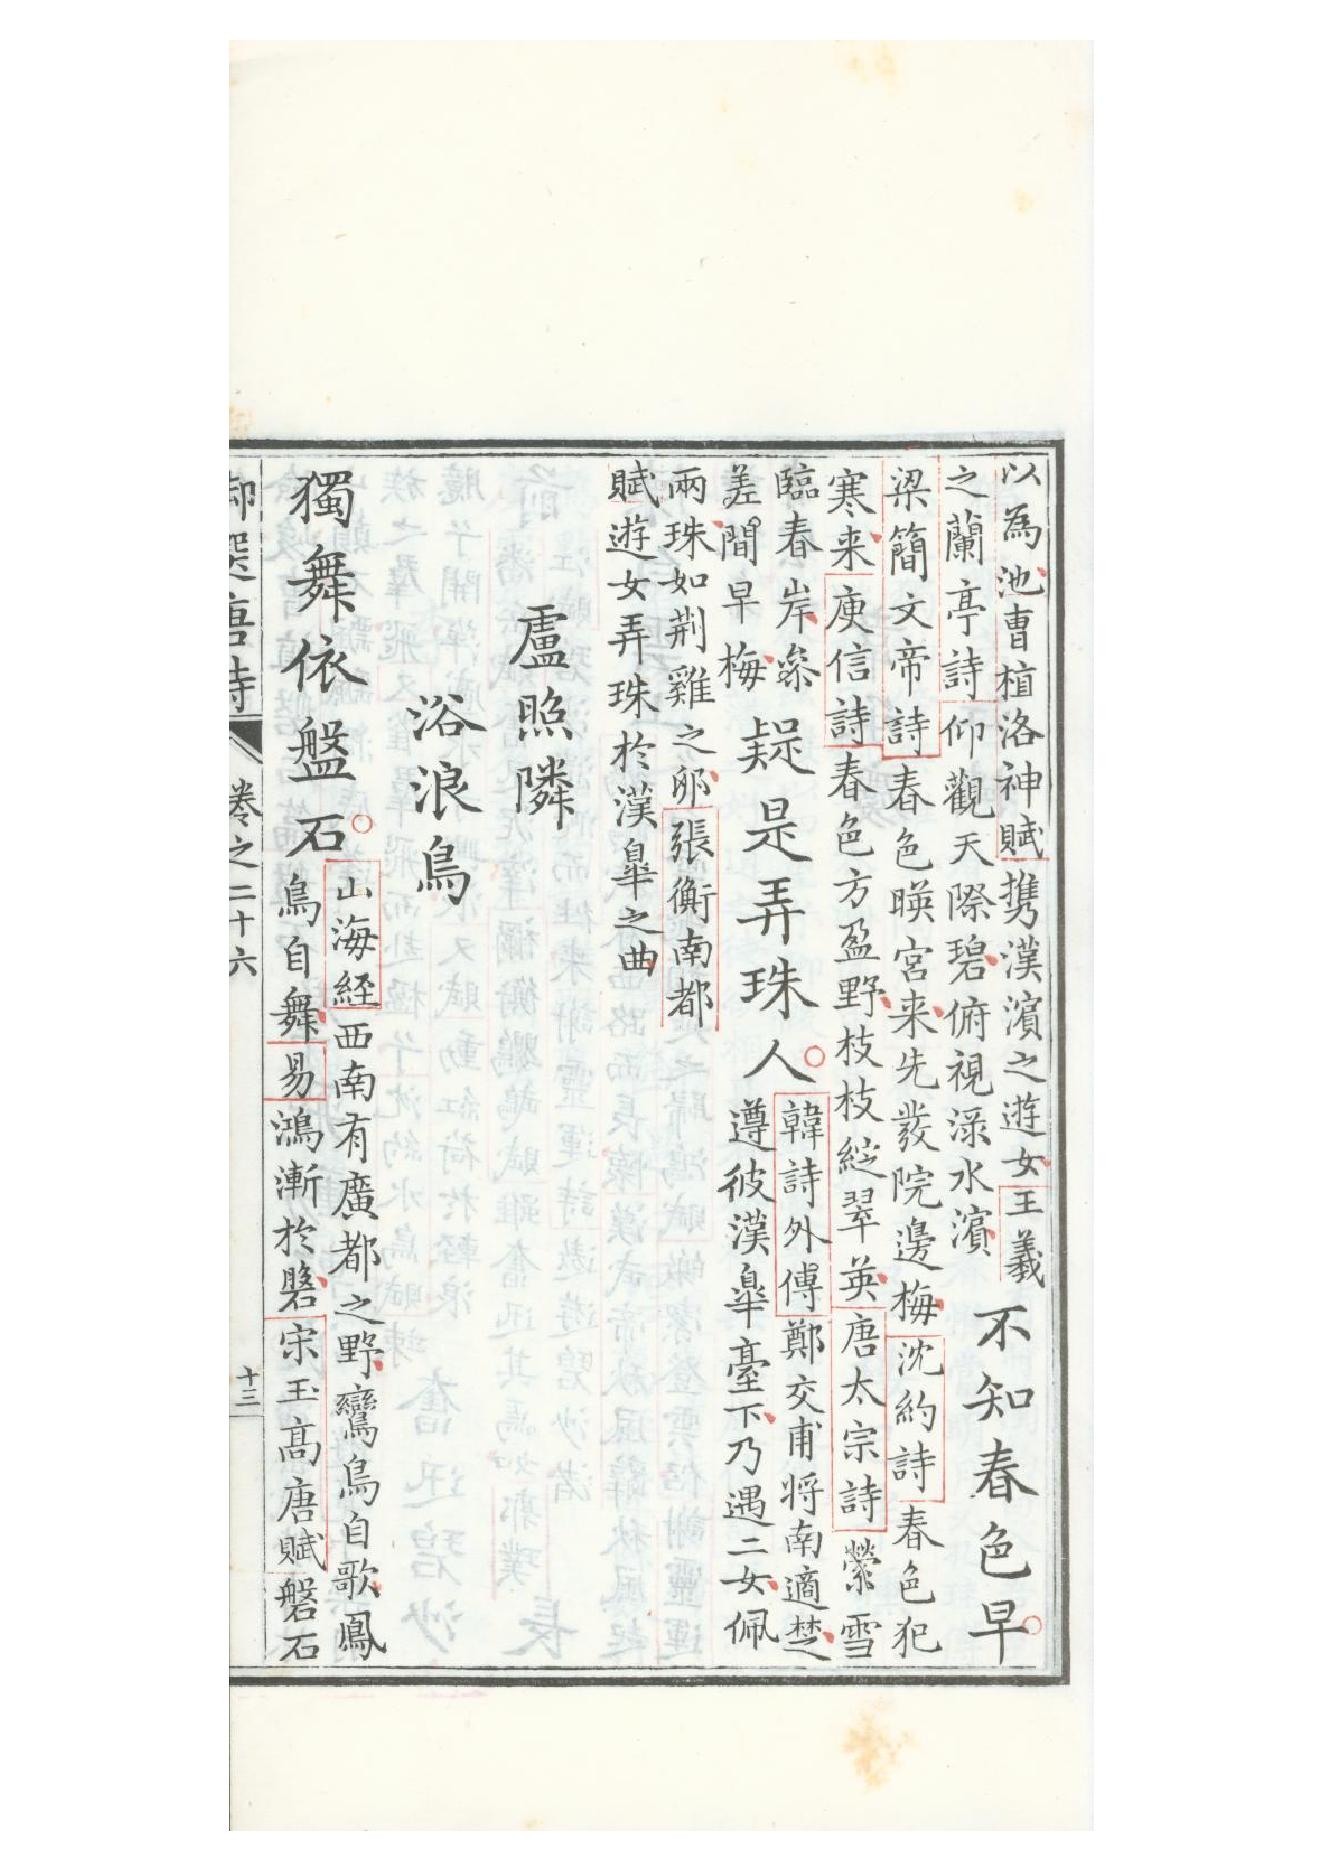 以為池曹植洛神賦攜漢濱之遊女王羲
之蘭亭詩仰觀天際碧俯視淥水濱
不知春色早
梁簡文帝詩春色暎宮来先發院邊梅沈約詩春色犯
寒来庾信詩春色方盈野枝枝綻翠英唐太宗詩縈雪
臨春岸叅
差間早梅
疑是弄珠人
韓詩外傳鄭交甫將南適楚
遵彼漢臯臺下乃遇二女佩
兩珠如荆雞之卵張衡南都
賦遊女弄珠於漢臯之曲
盧照隣
浴浪鳥
獨舞依盤石
山海經西南有廣都之野鸞鳥自歌鳳
鳥自舞易鴻漸於磐宋玉高唐賦磐石
御選唐詩
卷之二十六
十三